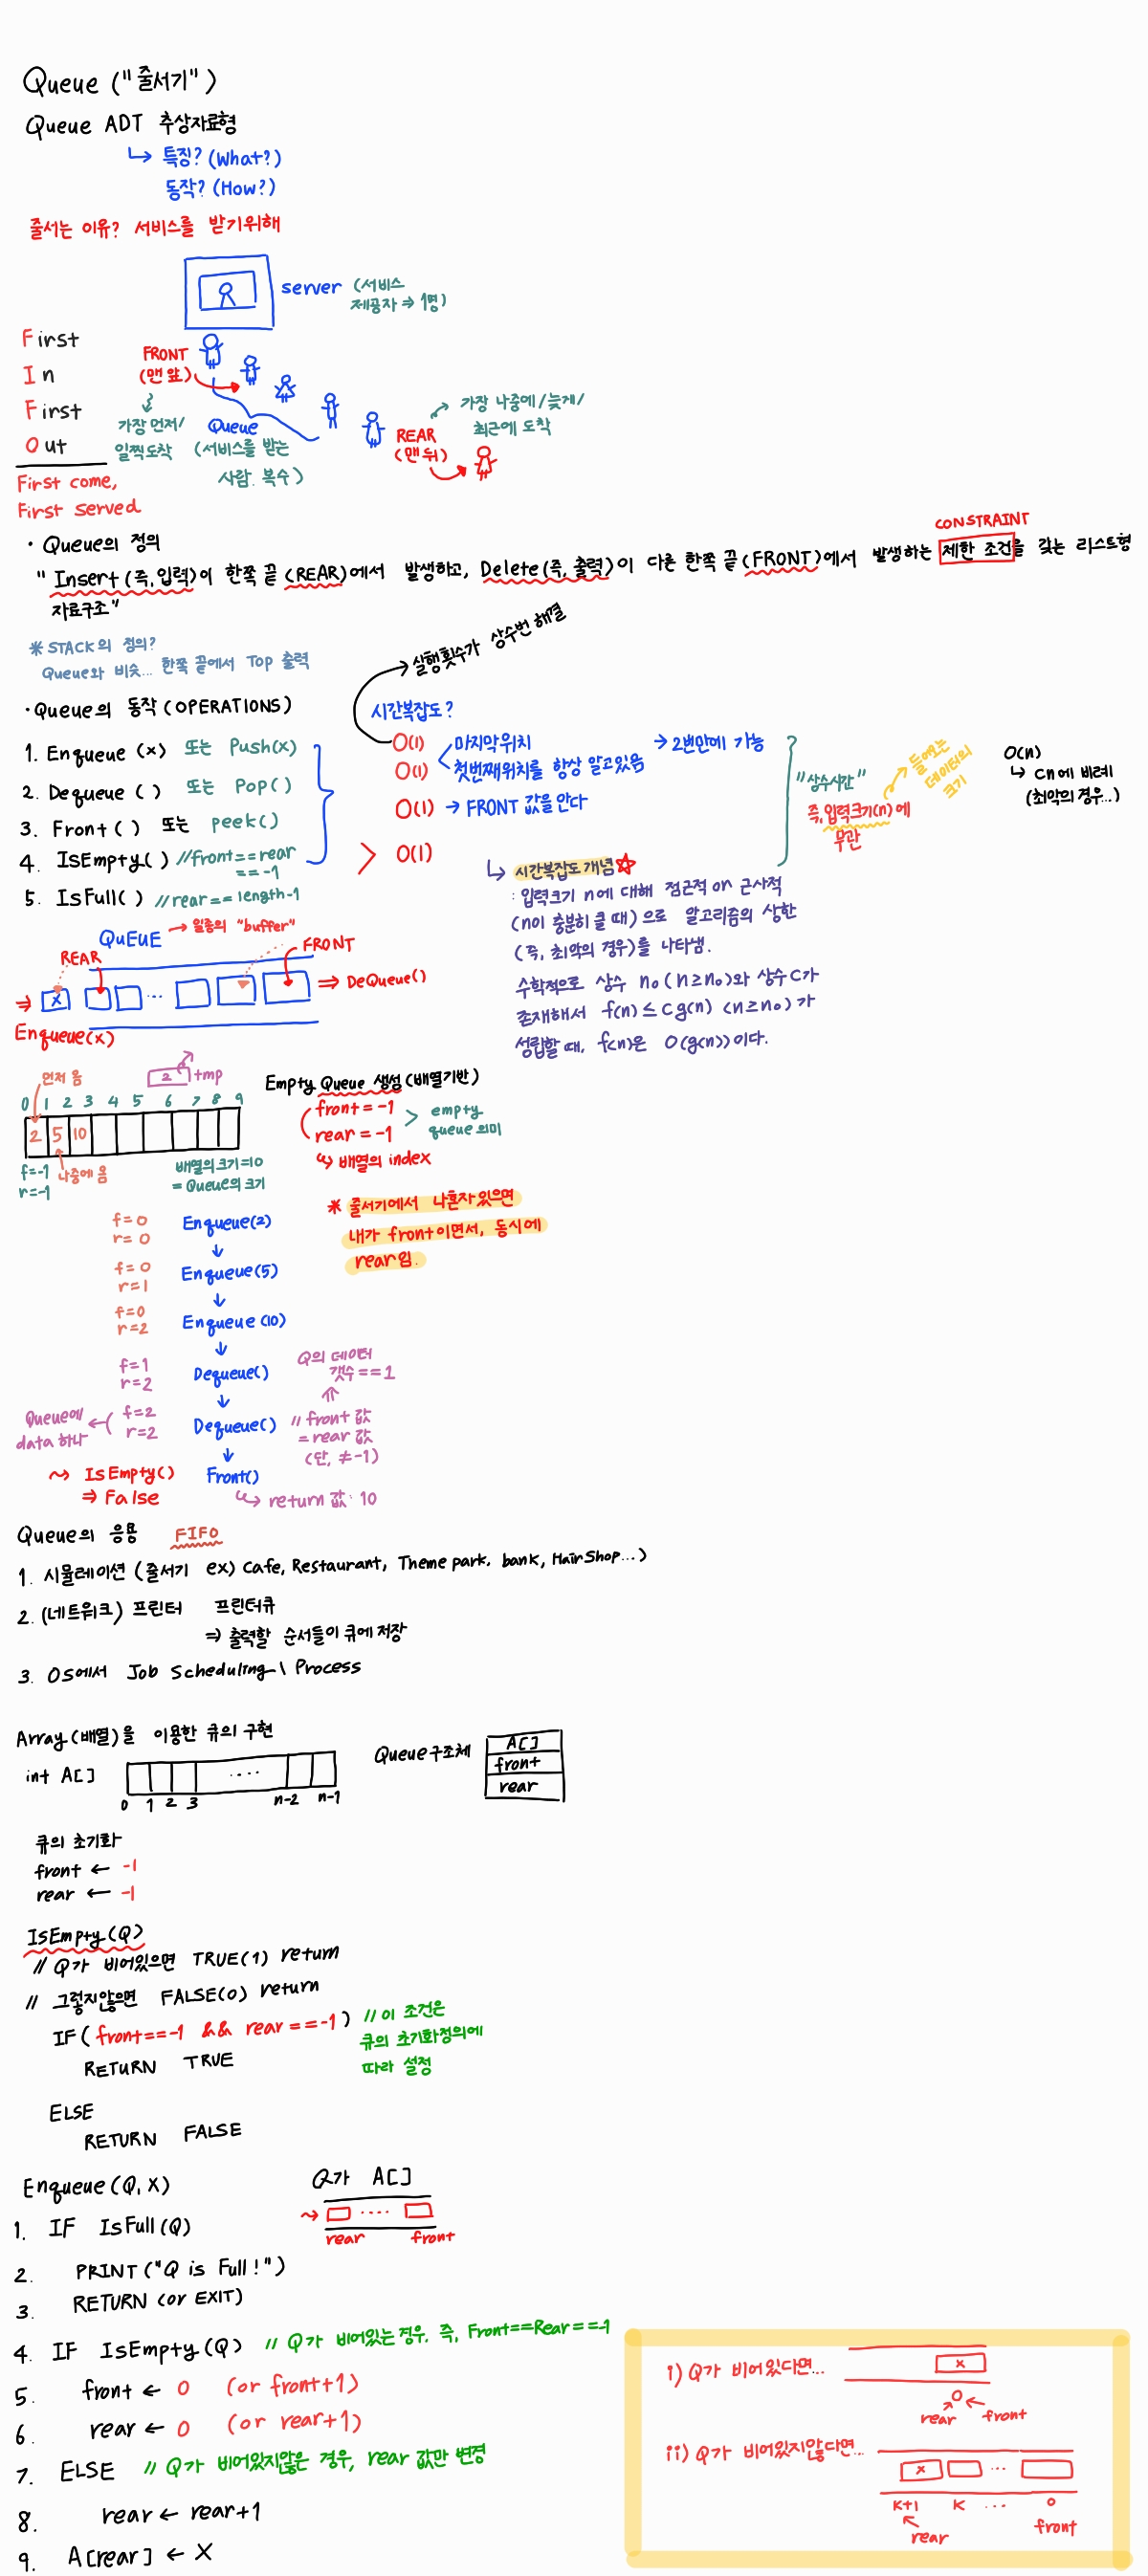 Queue ("줄서기")
Queue ADT 추상자료형
↳ 특징? (What?)
동작? (How?)
줄서는 이유? 서비스를 받기위해
server (서비스
제공자 ⇒ 1명)
First
In
First
Out
First come,
First served
FRONT
(맨 앞)
가장 먼저/
일찍도착
Queue
(서비스를 받는
사람. 복수)
REAR
(맨 뒤)
가장 나중에/늦게/
최근에 도착
· Queue의 정의
CONSTRAINT
" Insert (즉, 입력)이 한쪽 끝 (REAR)에서 발생하고, Delete (즉, 출력)이 다른 한쪽 끝 (FRONT)에서 발생하는 제한 조건을 갖는 리스트형
자료구조"
* STACK의 정의?
Queue와 비슷... 한쪽 끝에서 Top 출력
→ 실행횟수가 상수번 해결
· Queue의 동작 (OPERATIONS)
시간복잡도?
1. Enqueue (x) 또는 Push(x)
2. Dequeue ( ) 또는 Pop( )
3. Front ( ) 또는 peek( )
4. ISEmpty( ) //front==rear
== -1
5. IsFull( ) //rear == length-1
O(1)
O(1)
마지막위치
첫번째위치를 항상 알고있음
→ 2번만에 가능
O(1) → FRONT 값을 안다
O(1)
"상수시간"
즉, 입력크기(n)에
무관
들어오는
데이터의
크기
O(n)
↳ cn에 비례
(최악의 경우...)
↳ 시간복잡도 개념 ☆
: 입력크기 n에 대해 점근적 or 근사적
(n이 충분히 클 때)으로 알고리즘의 상한
(즉, 최악의 경우)를 나타냄.
수학적으로 상수 n₀ (n≥n₀)와 상수 C가
존재해서 f(n) ≤ C g(n) (n≥n₀) 가
성립할 때, f(n)은 O(g(n))이다.
QuEUE → 일종의 "buffer"
REAR
FRONT
⇒ x ... ⇒ DeQueue()
Enqueue(x)
먼저 옴
2 tmp
0 1 2 3 4 5 6 7 8 9
2 5 10
f=-1
r=-1
나중에 옴
배열의 크기=10
= Queue의 크기
Empty Queue 생성 (배열기반)
front = -1
rear = -1
> empty
queue 의미
↳ 배열의 index
* 줄서기에서 나혼자 있으면
내가 front이면서, 동시에
rear임.
f=0
r=0
Enqueue(2)
↓
f=0
r=1
Enqueue(5)
↓
f=0
r=2
Enqueue (10)
↓
f=1
r=2
Dequeue()
↓
Q의 데이터
갯수==1
⇑
Queue에
data 하나
f=2
r=2
Dequeue()
↓
// front 값
= rear 값
(단, ≠-1)
~> IsEmpty()
⇒ False
Front()
↳ return 값: 10
Queue의 응용 FIFO
1. 시뮬레이션 (줄서기 ex) Cafe, Restaurant, Theme park. bank, HairShop...)
2. (네트워크) 프린터 프린터큐
⇒ 출력할 순서들이 큐에 저장
3. OS에서 Job Scheduling \ Process
Array (배열)을 이용한 큐의 구현
int A[]
....
0 1 2 3 n-2 n-1
Queue 구조체
A[]
front
rear
큐의 초기화
front ← -1
rear ← -1
ISEmpty (Q)
// Q가 비어있으면 TRUE(1) return
// 그렇지않으면 FALSE(0) return
IF ( front==-1 && rear ==-1 )
// 이 조건은
큐의 초기화정의에
따라 설정
RETURN TRUE
ELSE
RETURN FALSE
Enqueue (Q, X)
Q가 A[]
~> ....
rear front
1. IF IsFull (Q)
2. PRINT ("Q is Full!")
3. RETURN (or EXIT)
4. IF IsEmpty (Q) // Q가 비어있는경우. 즉, Front==Rear==-1
5. front ← 0 (or front+1)
6. rear ← 0 (or rear+1)
7. ELSE // Q가 비어있지않은 경우, rear 값만 변경
8. rear ← rear+1
9. A[rear] ← X
i) Q가 비어있다면...
x
0
rear front
ii) Q가 비어있지않다면...
x ...
K+1 K ... 0
rear
front